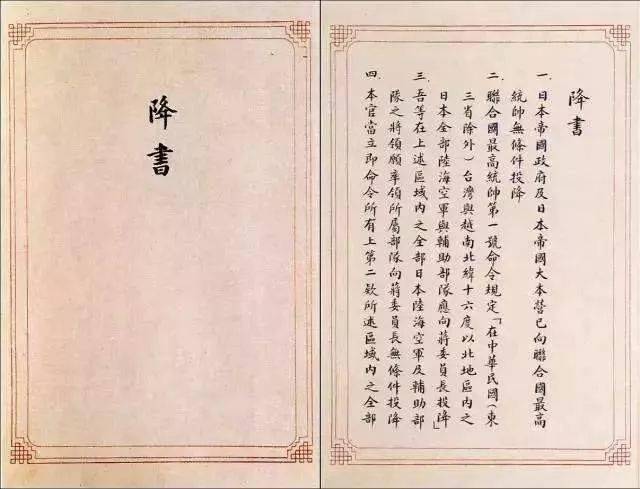 降書
降書
一．日本帝國政府及日本帝國大本營已向聯合國最高
統帥無條件投降
二．聯合國最高統帥第一號命令規定「在中華民國（東
三省除外）台灣與越南北緯十六度以北地區內之
日本全部陸海空軍與輔助部隊應向蔣委員長投降」
三．吾等在上述區域內之全部日本陸海空軍及輔助部
隊之將領願率領所屬部隊向蔣委員長無條件投降
四．本官當立即命令所有上第二欵所述區域內之全部